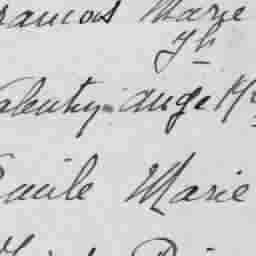 rancois Marie
Jh
alentin ange M
Emile Marie